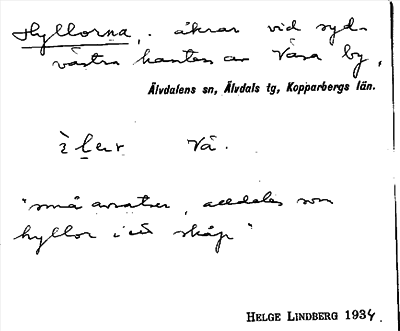 Hyllorna, åkrar vid syd-
västra kanten av Våsa by,
Älvdalens sn, Älvdals tg, Kopparbergs län.
i Vå.
"små avsatser, alldeles som
hyllor i ett skåp"
HELGE LINDBERG 1934.